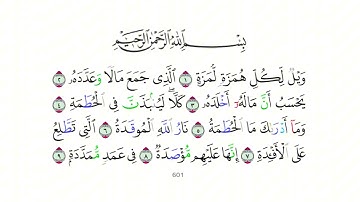 بِسْمِ اللَّهِ الرَّحْمَٰنِ الرَّحِيمِ
وَيْلٌ لِّكُلِّ هُمَزَةٍ لُّمَزَةٍ ١ الَّذِي جَمَعَ مَالًا وَعَدَّدَهُ ٢
يَحْسَبُ أَنَّ مَالَهُ أَخْلَدَهُ ٣ كَلَّا لَيُنبَذَنَّ فِي الْحُطَمَةِ ٤
وَمَا أَدْرَاكَ مَا الْحُطَمَةُ ٥ نَارُ اللَّهِ الْمُوقَدَةُ ٦ الَّتِي تَطَّلِعُ
عَلَى الْأَفْئِدَةِ ٧ إِنَّهَا عَلَيْهِم مُّؤْصَدَةٌ ٨ فِي عَمَدٍ مُّمَدَّدَةٍ ٩
601